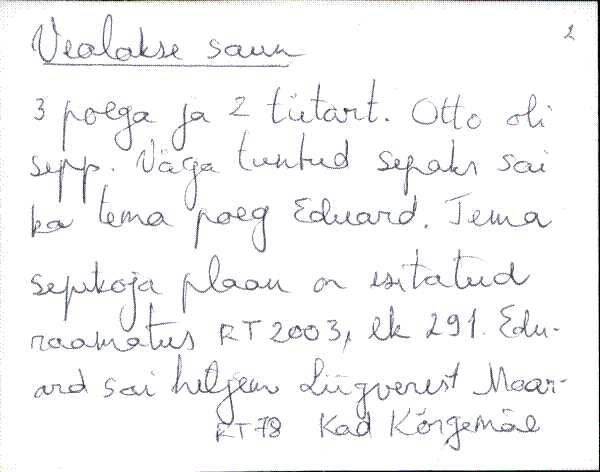 2
Vealakse saun
3 poega ja 2 tütart. Otto oli
sepp. Väga tuntud sepaks sai
ka tema poeg Eduard. Tema
sepikoja plaan on esitatud
raamatus RT 2003, lk 291. Edu-
ard sai hiljem Liigverest Maar-
RT 78 Kad Kõrgemäe